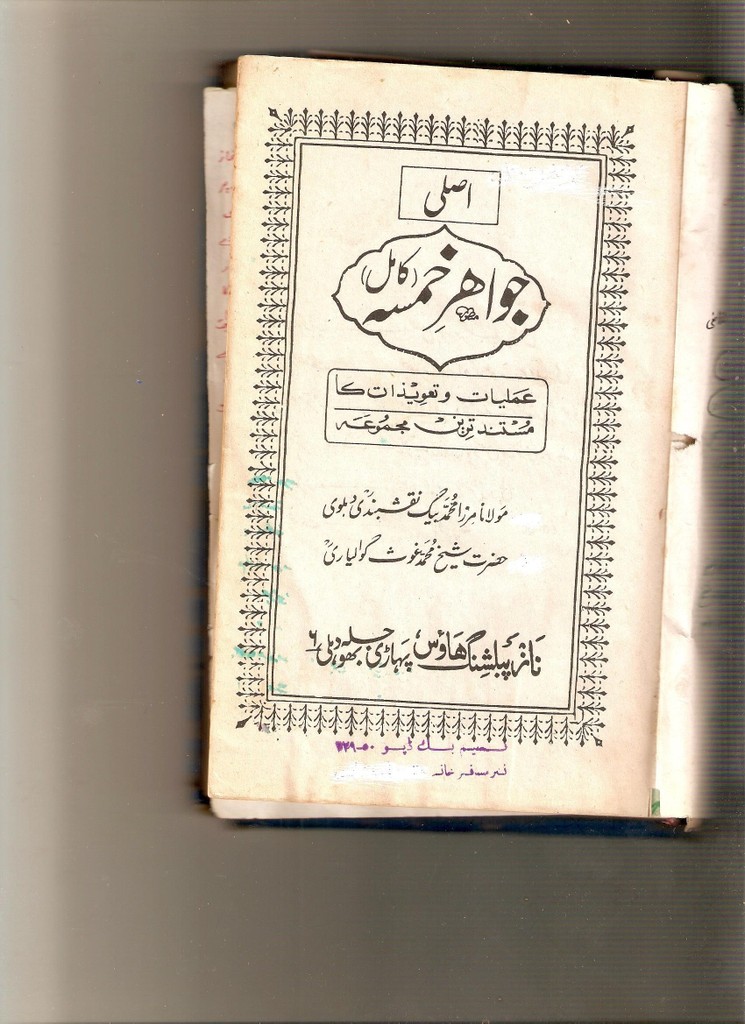 اصلی
جواہر خمسہ (کامل)
عملیات و تعویذات کا
مستند ترین مجموعہ
مولانا مرزا محمد بیگ نقشبندی دہلوی
حضرت شیخ محمد غوث گوالیاری
ناز پبلشنگ ہاؤس پہاڑی بھوجلہ دہلی ۶
بک ڈپو